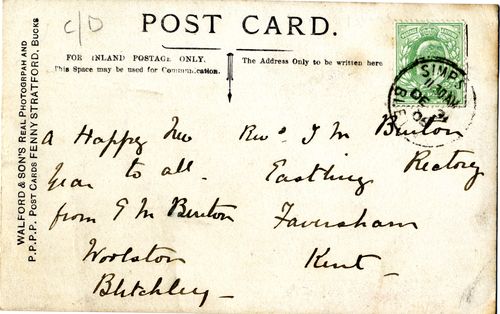 c/o
POST CARD.
FOR INLAND POSTAGE ONLY.
This Space may be used for Communication.
The Address Only to be written here
WALFORD & SON'S REAL PHOTOGRPAH AND
P.P.P.P. POST CARDS FENNY STRATFORD, BUCKS
A Happy New
Year to all
from E M Benton
Woolston
Bletchley
Revd J M Benton
Eastling Rectory
Faversham
Kent
SIMPS
11.30AM
DE 31
BLE